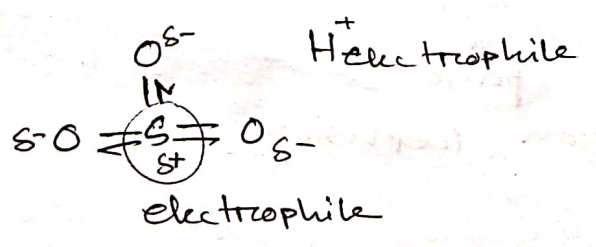 Oδ-
H+ electrophile
δ-O = S = Oδ-
δ+
electrophile